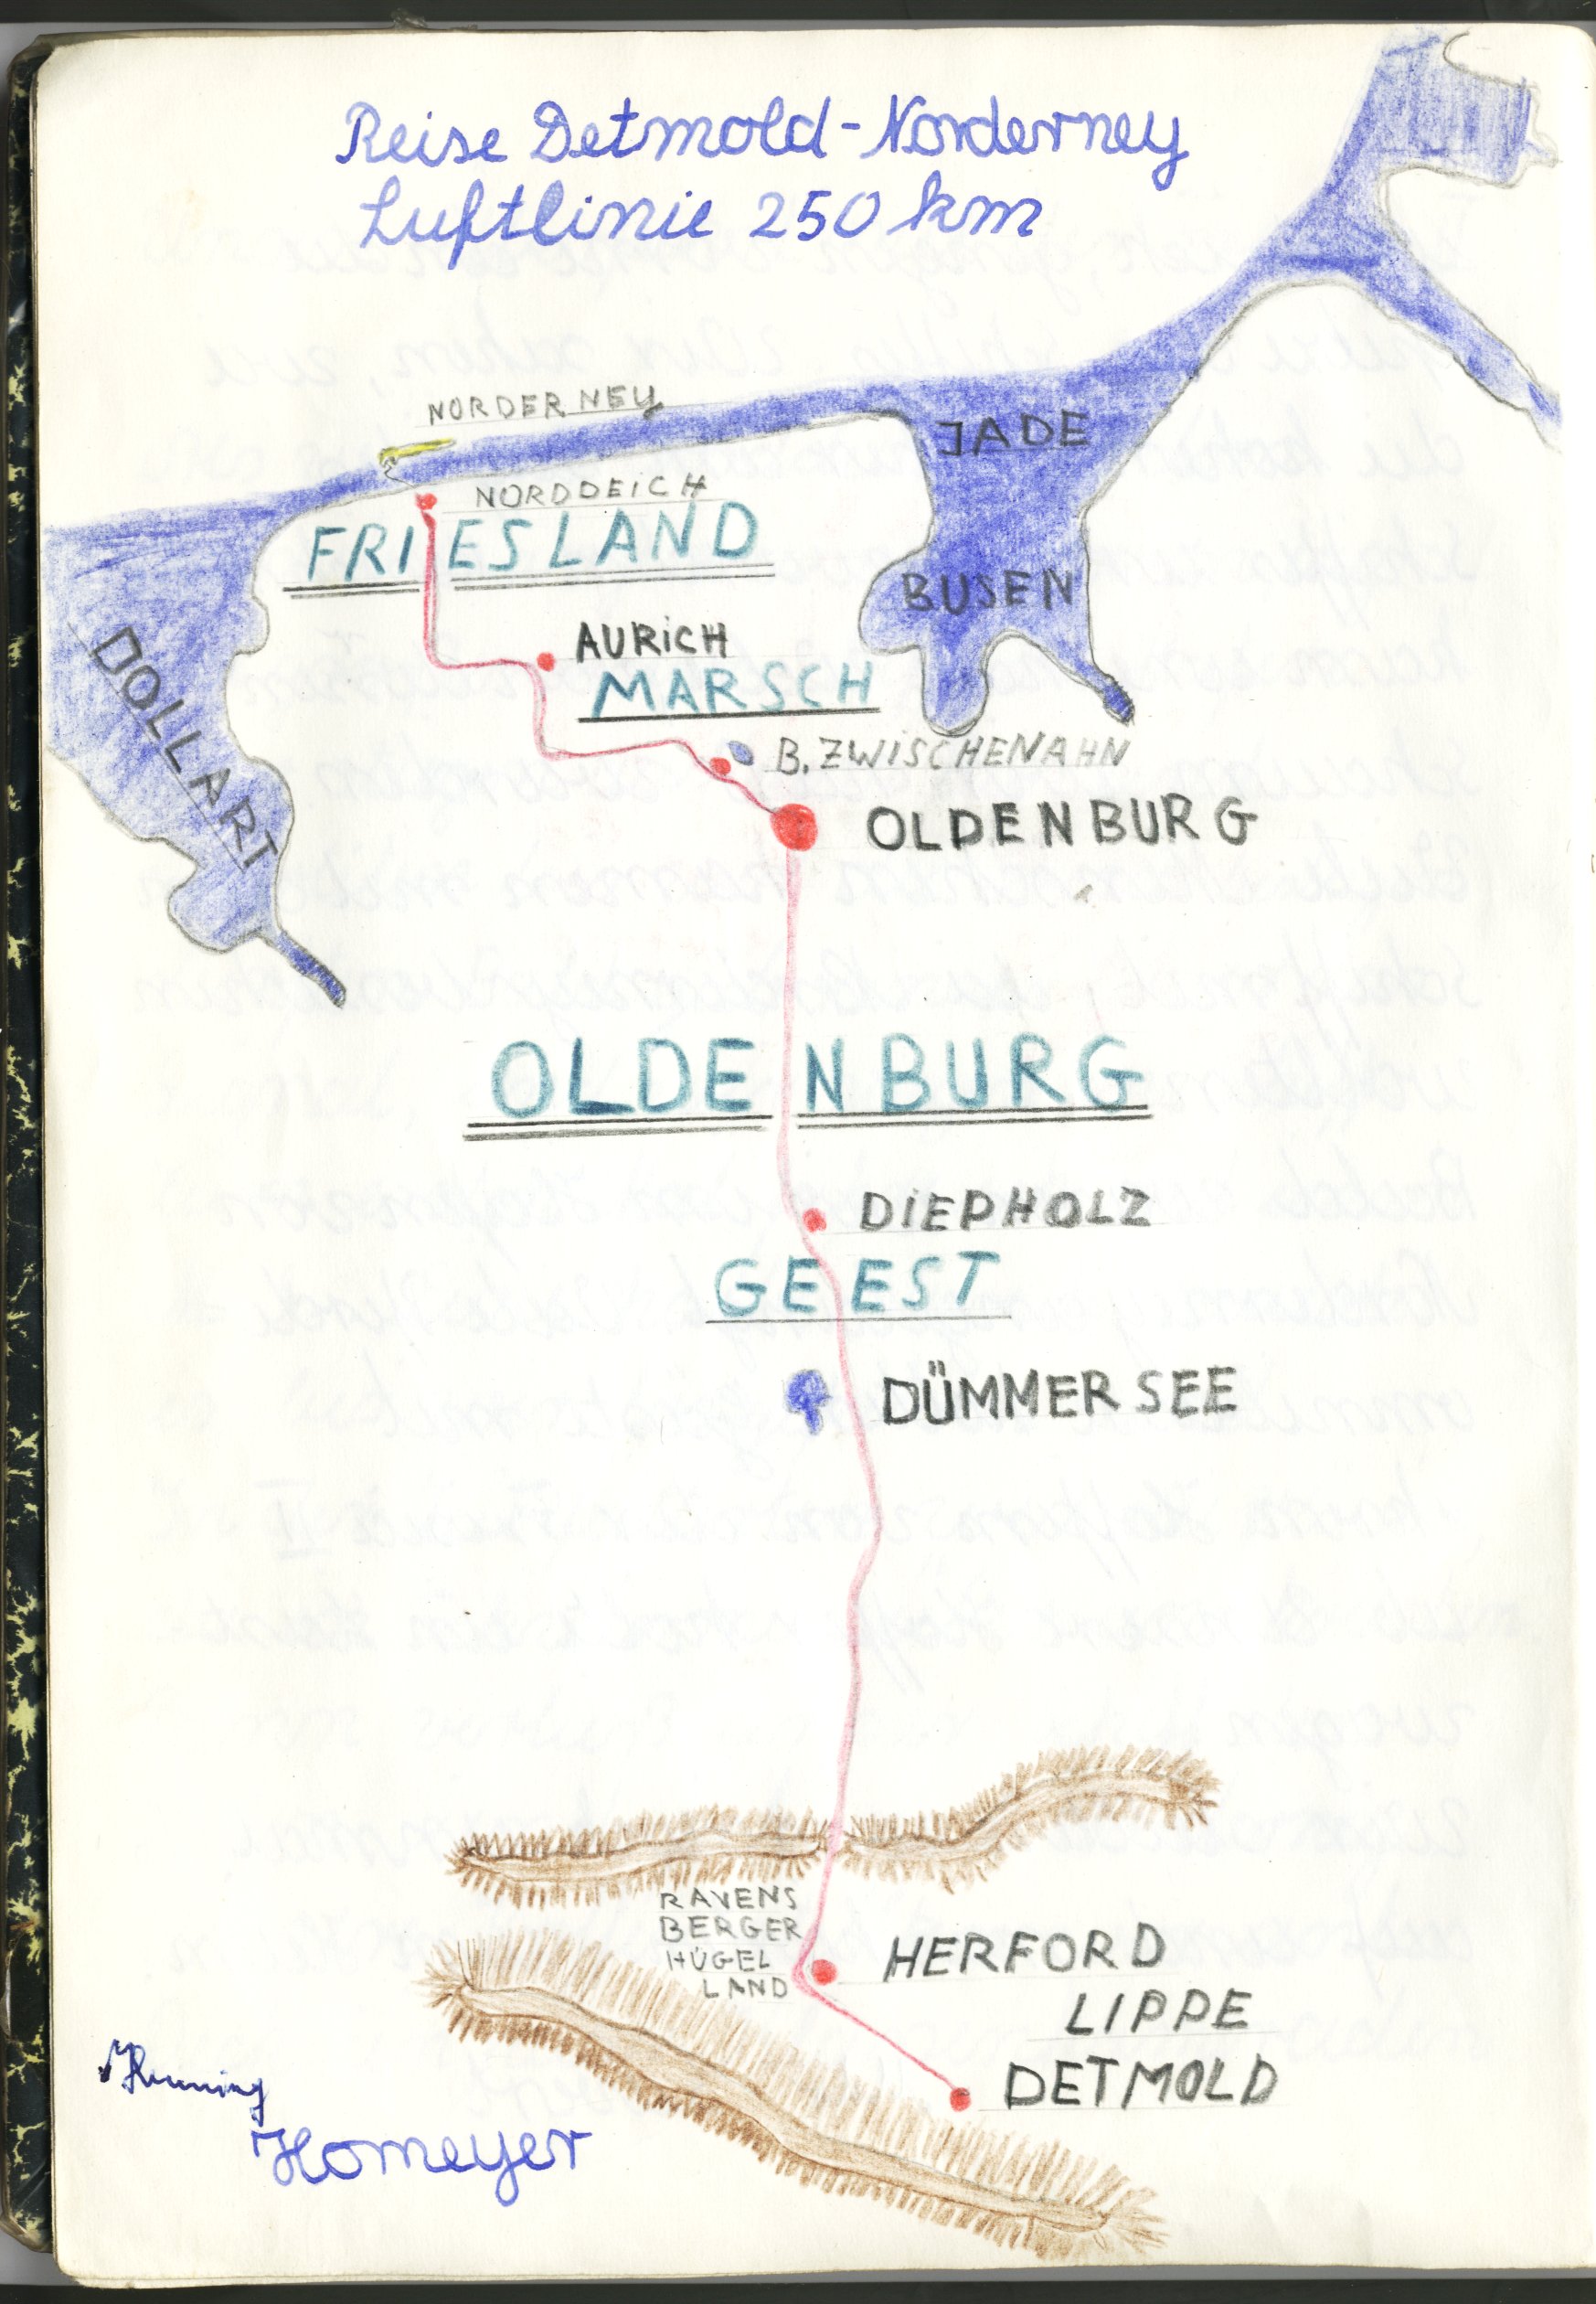 Reise Detmold-Norderney
Luftlinie 250 km
NORDERNEY
JADE
NORDDEICH
FRIESLAND
BUSEN
AURICH
DOLLART
MARSCH
B. ZWISCHENAHN
OLDENBURG
OLDENBURG
DIEPHOLZ
GEEST
DÜMMER SEE
RAVENS
BERGER
HÜGEL
LAND
HERFORD
LIPPE
DETMOLD
Henning
Homeyer